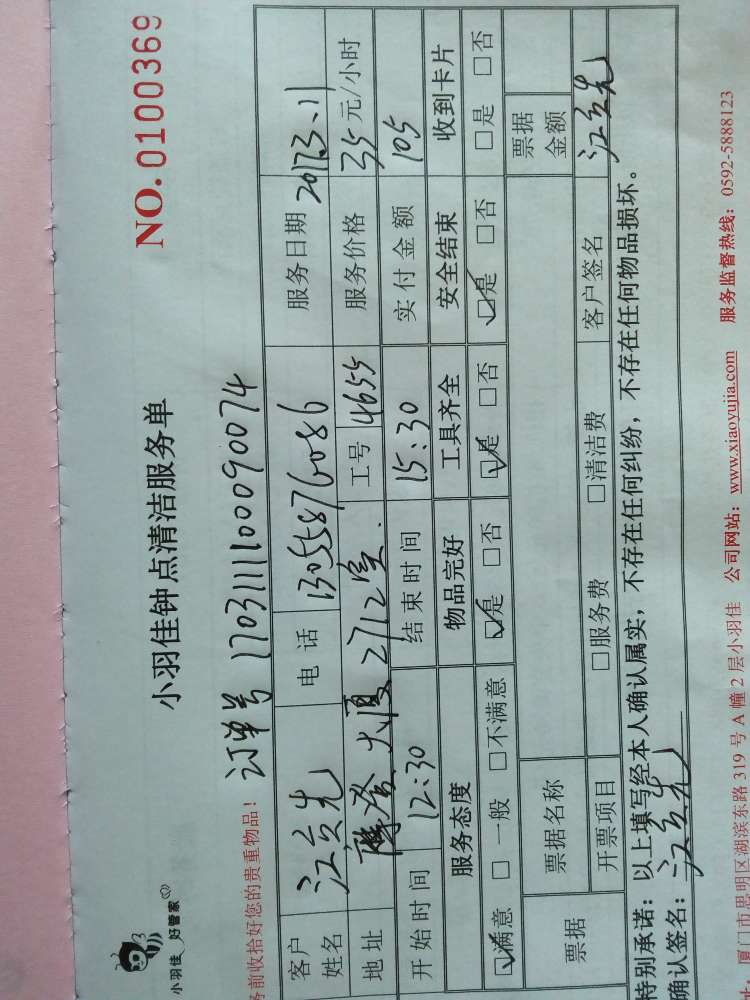 小羽佳 好管家
小羽佳钟点清洁服务单
NO. 0100369
务前收拾好您的贵重物品！
订单号 1703111100090074
客户姓名 江 先 电话 13055876086 服务日期 2017.3.11
地址 大厦2712室. 工号 4655 服务价格 35元/小时
开始时间 12:30 结束时间 15:30 实付金额 105
服务态度 物品完好 工具齐全 安全结束 收到卡片
☑满意 □一般 □不满意 ☑是 □否 ☑是 □否 ☑是 □否 □是 □否
票据 票据名称 票据金额
开票项目 □服务费 □清洁费 客户签名 江 先
特别承诺：以上填写经本人确认属实，不存在任何纠纷，不存在任何物品损坏。
确认签名：江 先
厦门市思明区湖滨东路 319 号 A 幢 2 层小羽佳 公司网站：www.xiaoyujia.com 服务监督热线：0592-5888123